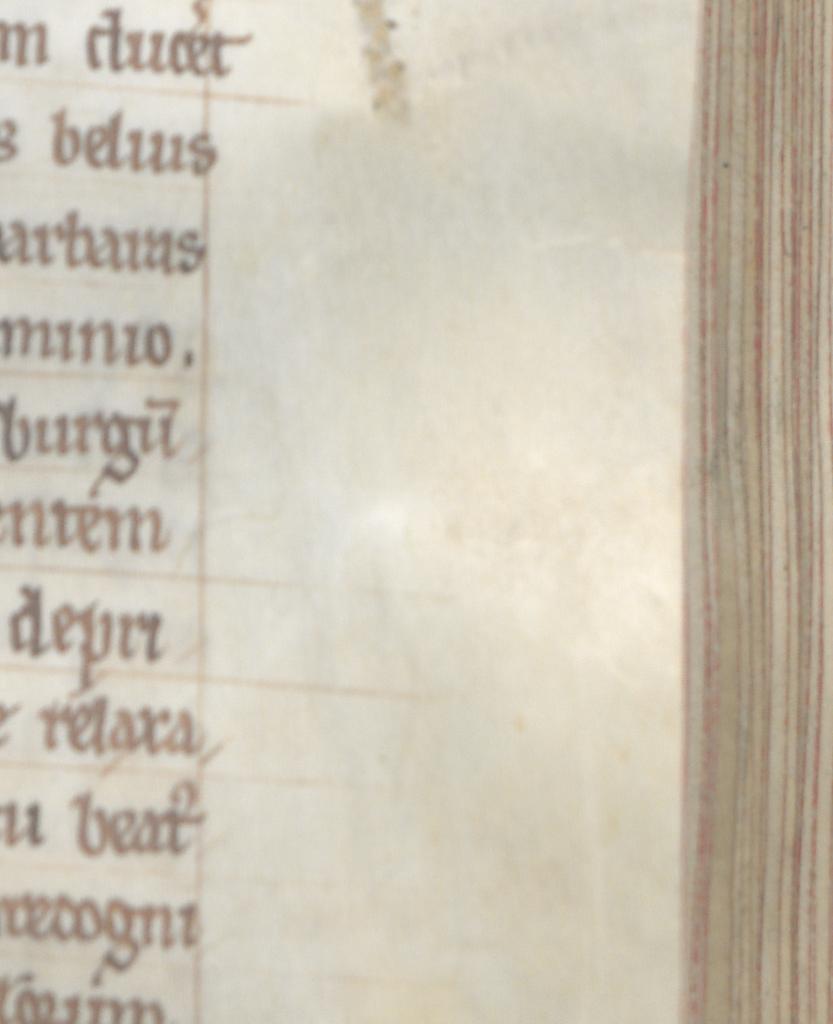 m ducet
s belius
arbaris
minio.
burgū
entem
depri
relaxa
tu beat᷒
recogni